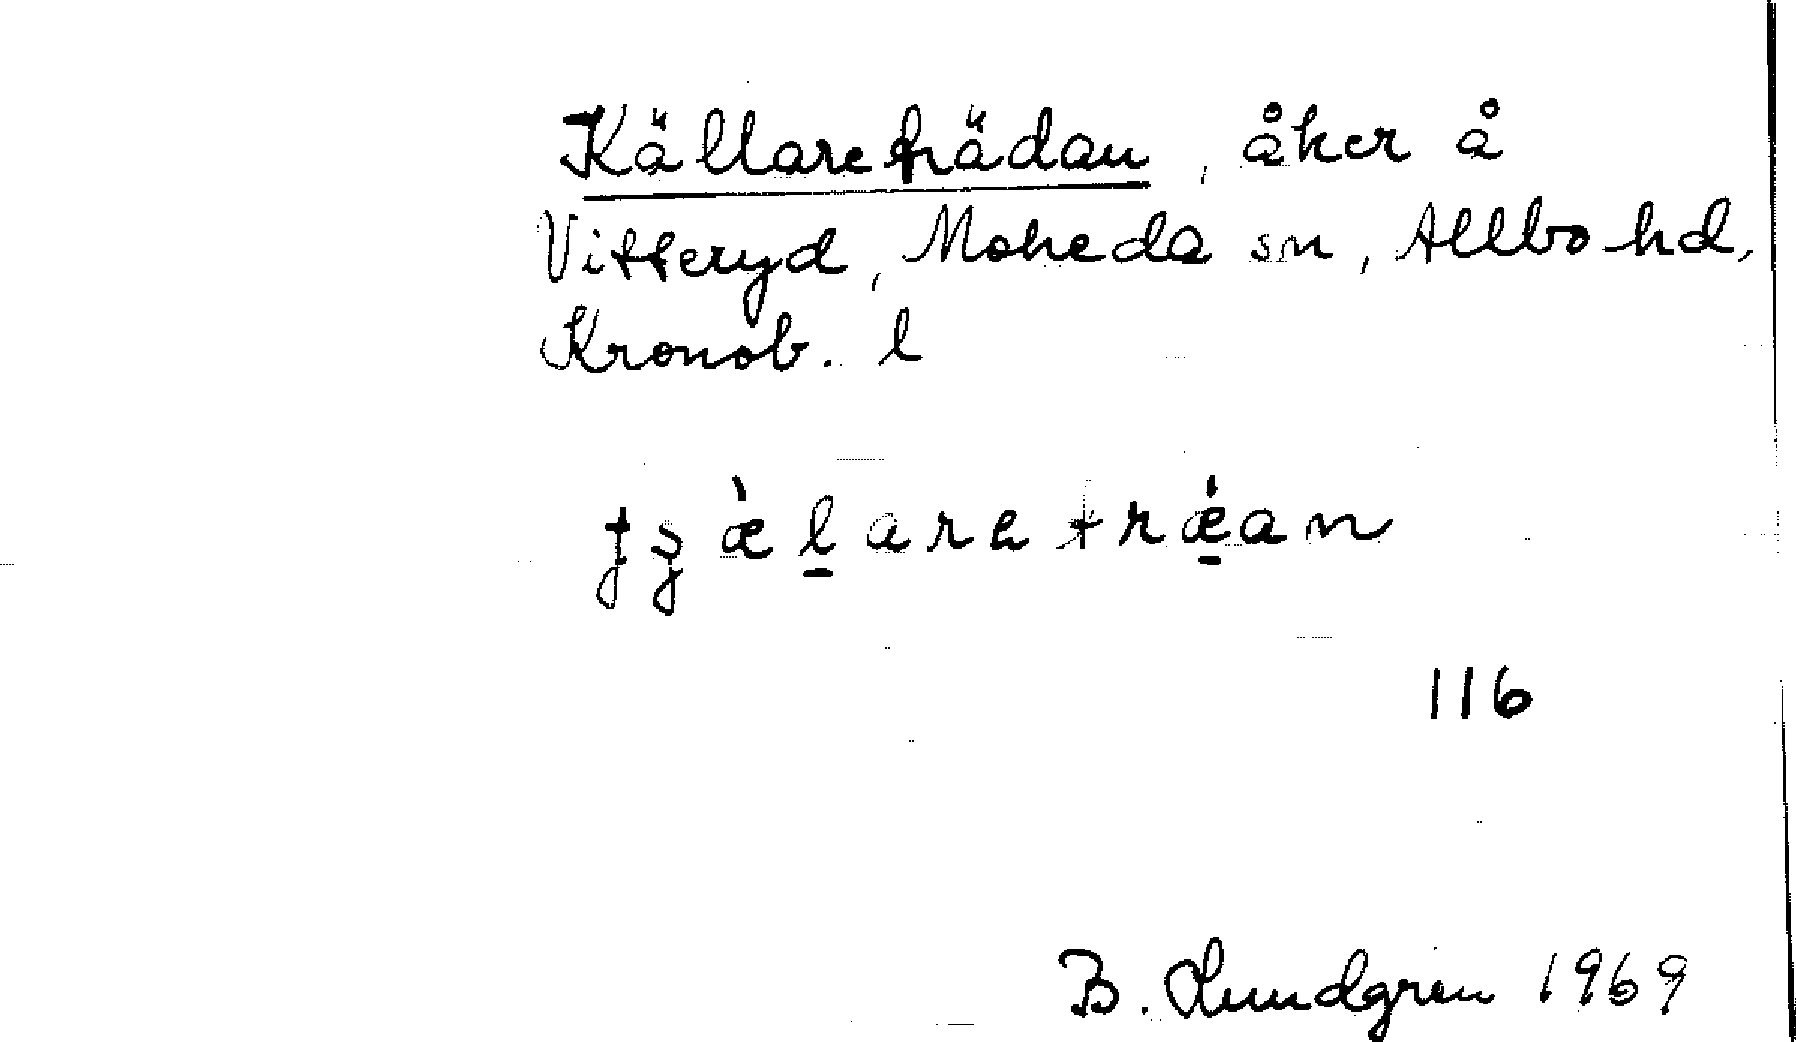 Källareträdan, åker å
Vitteryd, Moheda sn, Allbo hd,
Kronob. l
116
B. Lundgren 1969